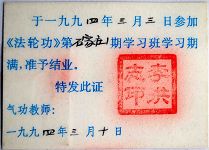 于一九九四年三月三日参加
《法轮功》第石家庄期学习班学习期
满，准予结业。
特发此证
气功教师：
李洪志印
一九九四年三月十日